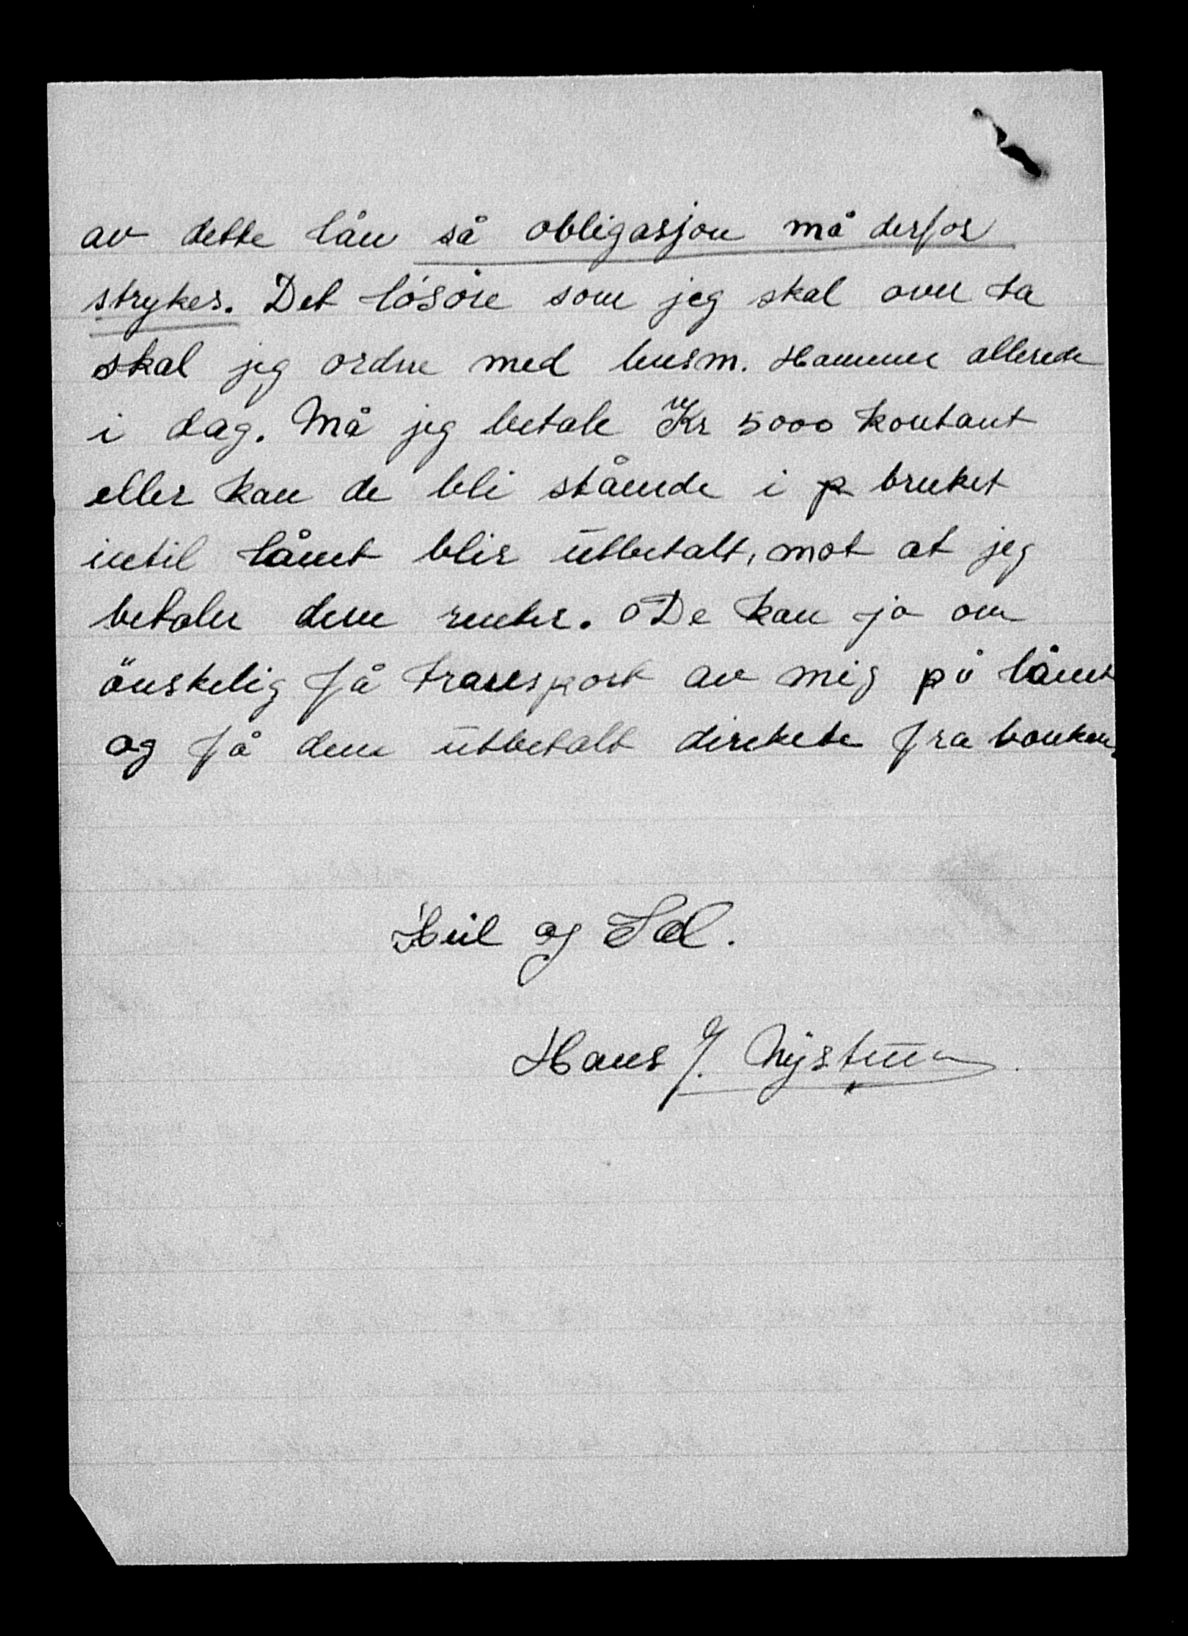 av dette lån så obligasjon må derfor
strykes. Det lösöre som jeg skal over ta
skal jeg ordne med busm. Hammer allerede
i dag. Må jeg betale Kr 5000 kontant
eller kan de bli stående i p bruket
intil lånet blir utbetalt, mot at jeg
betaler dem renter. De kan jo om
önskelig få transport av mig på lånet
og få dem utbetalt direkete fra banken.
Heil og Sæl.
Hans J. Nystuen